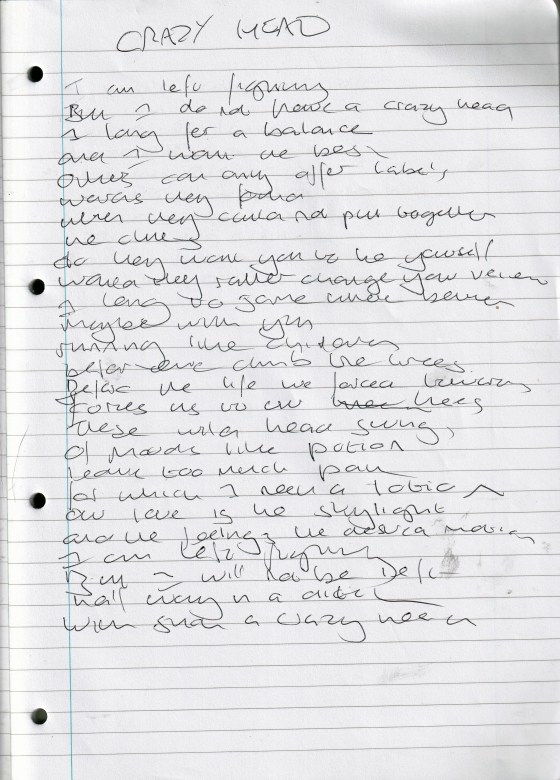 CRAZY HEAD
I am left fighting
But I do not have a crazy head
I long for a balance
and I want the best
Others can only offer labels,
words they found
when they could not put together
the clues
do they want you to be yourself
would they rather change your
I long to some
maybe with you
running like children
before we climb the trees
Before the life we forced
forces us to our knees
These wild head swings,
Of moods like potion
leave too much pain
for which I need a lotion
our love is the skylight
and the feelings the desired
I am left fighting
But I will not be left
half in a
With such a crazy head